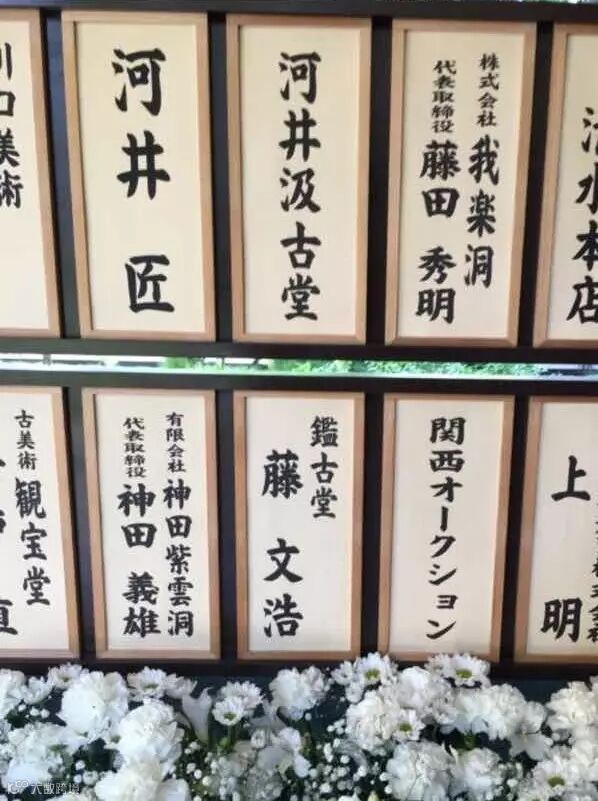 清水本店
株式会社 我楽洞
代表取締役 藤田 秀明
河井汲古堂
河井 匠
川口美術
上 明
関西オークション
鑑古堂
藤 文浩
有限会社 神田紫雲洞
代表取締役 神田 義雄
古美術 観宝堂
大数跨境